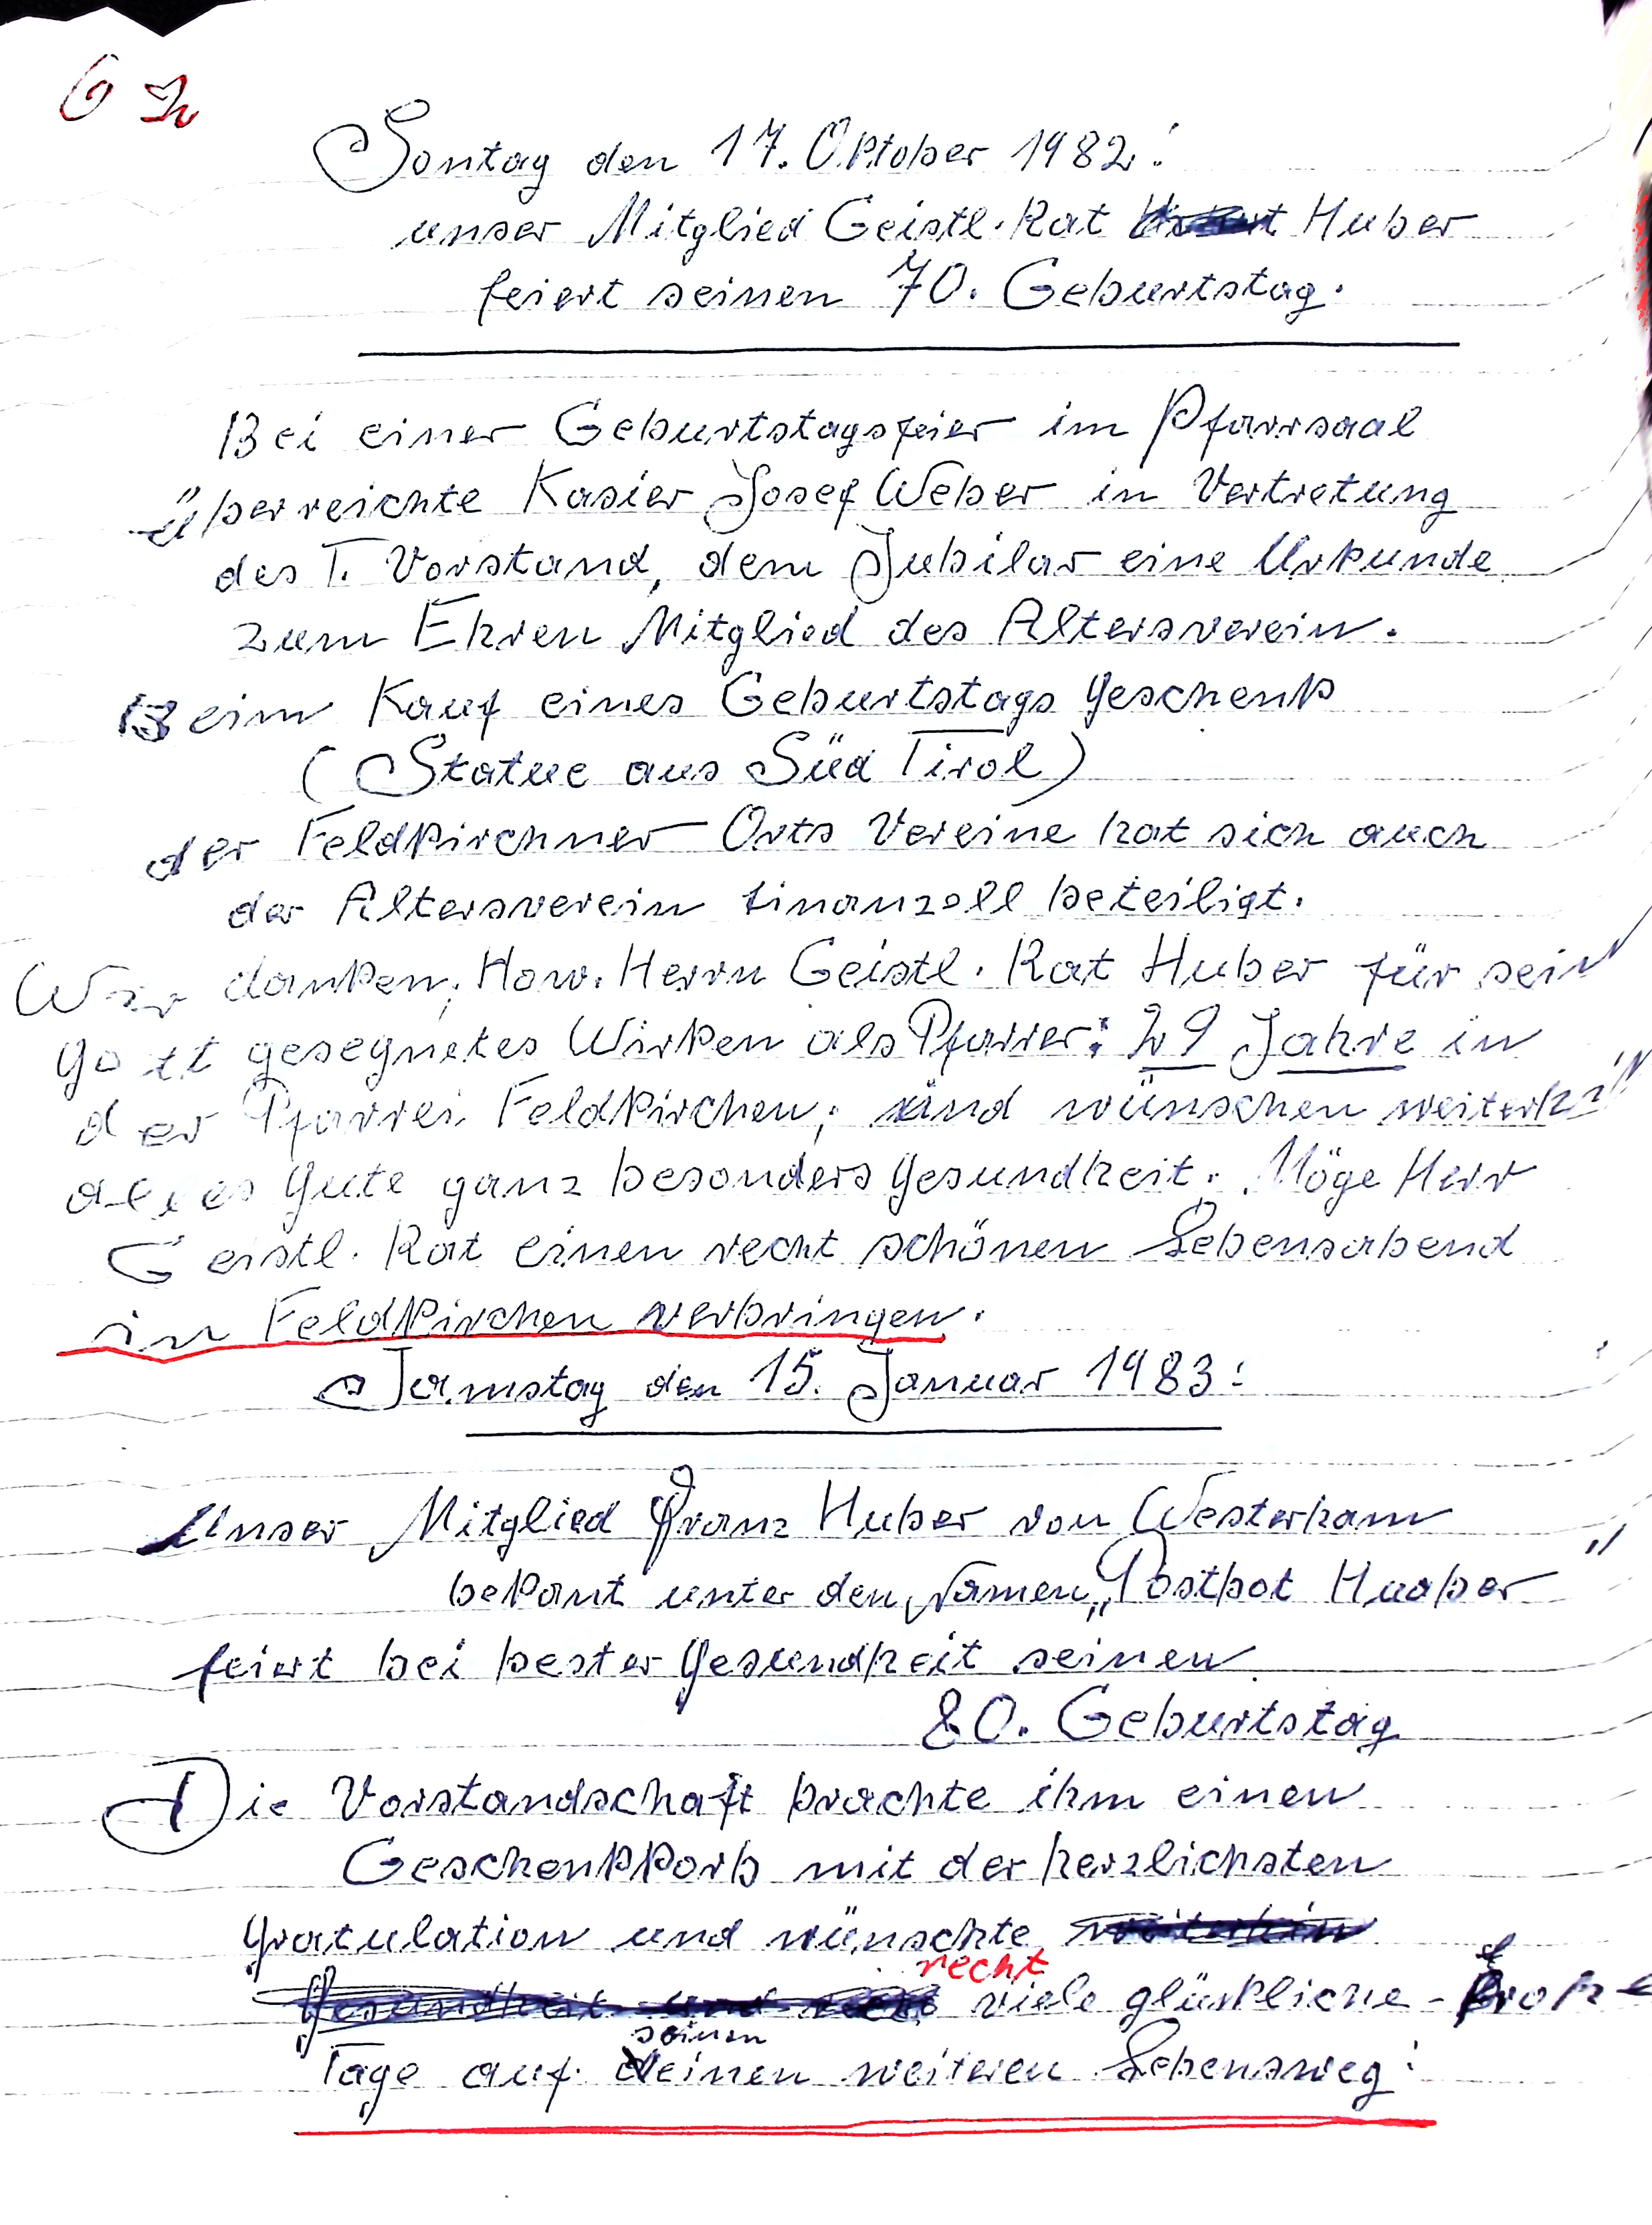 62
Sontag den 17. Oktober 1982:
unser Mitglied Geistl. Rat Huber
feiert seinen 70. Geburtstag.
Bei einer Geburtstagsfeier im Pfarrsaal
überreichte Kasier Josef Weber in Vertretung
des I. Vorstand, dem Jubilar eine Urkunde
zum Ehren Mitglied des Altersverein.
Beim Kauf eines Geburtstags Geschenk
(Statue aus Süd Tirol)
der Feldkirchner Orts Vereine hat sich auch
der Altersverein finanzell beteiligt.
Wir danken, How. Herrn Geistl. Rat Huber für sein
Gott gesegnetes Wirken als Pfarrer: 29 Jahre in
der Pfarrei Feldkirchen; und wünschen weiterhin
alles Gute ganz besonders Gesundheit. Möge Herr
Geistl. Rat einen recht schönen Lebensabend
in Feldkirchen verbringen.
Samstag den 15. Januar 1983:
Unser Mitglied Franz Huber von Westerham
bekant unter den Namen „Postbot Huaber"
feiert bei bester Gesundheit seinen
80. Geburtstag
Die Vorstandschaft brachte ihm einen
Geschenkkorb mit der herzlichsten
Gratulation und wünschte weiterhin
Gesundheit und recht recht viele glückliche - frohe
Tage auf seinen weiteren Lebensweg: